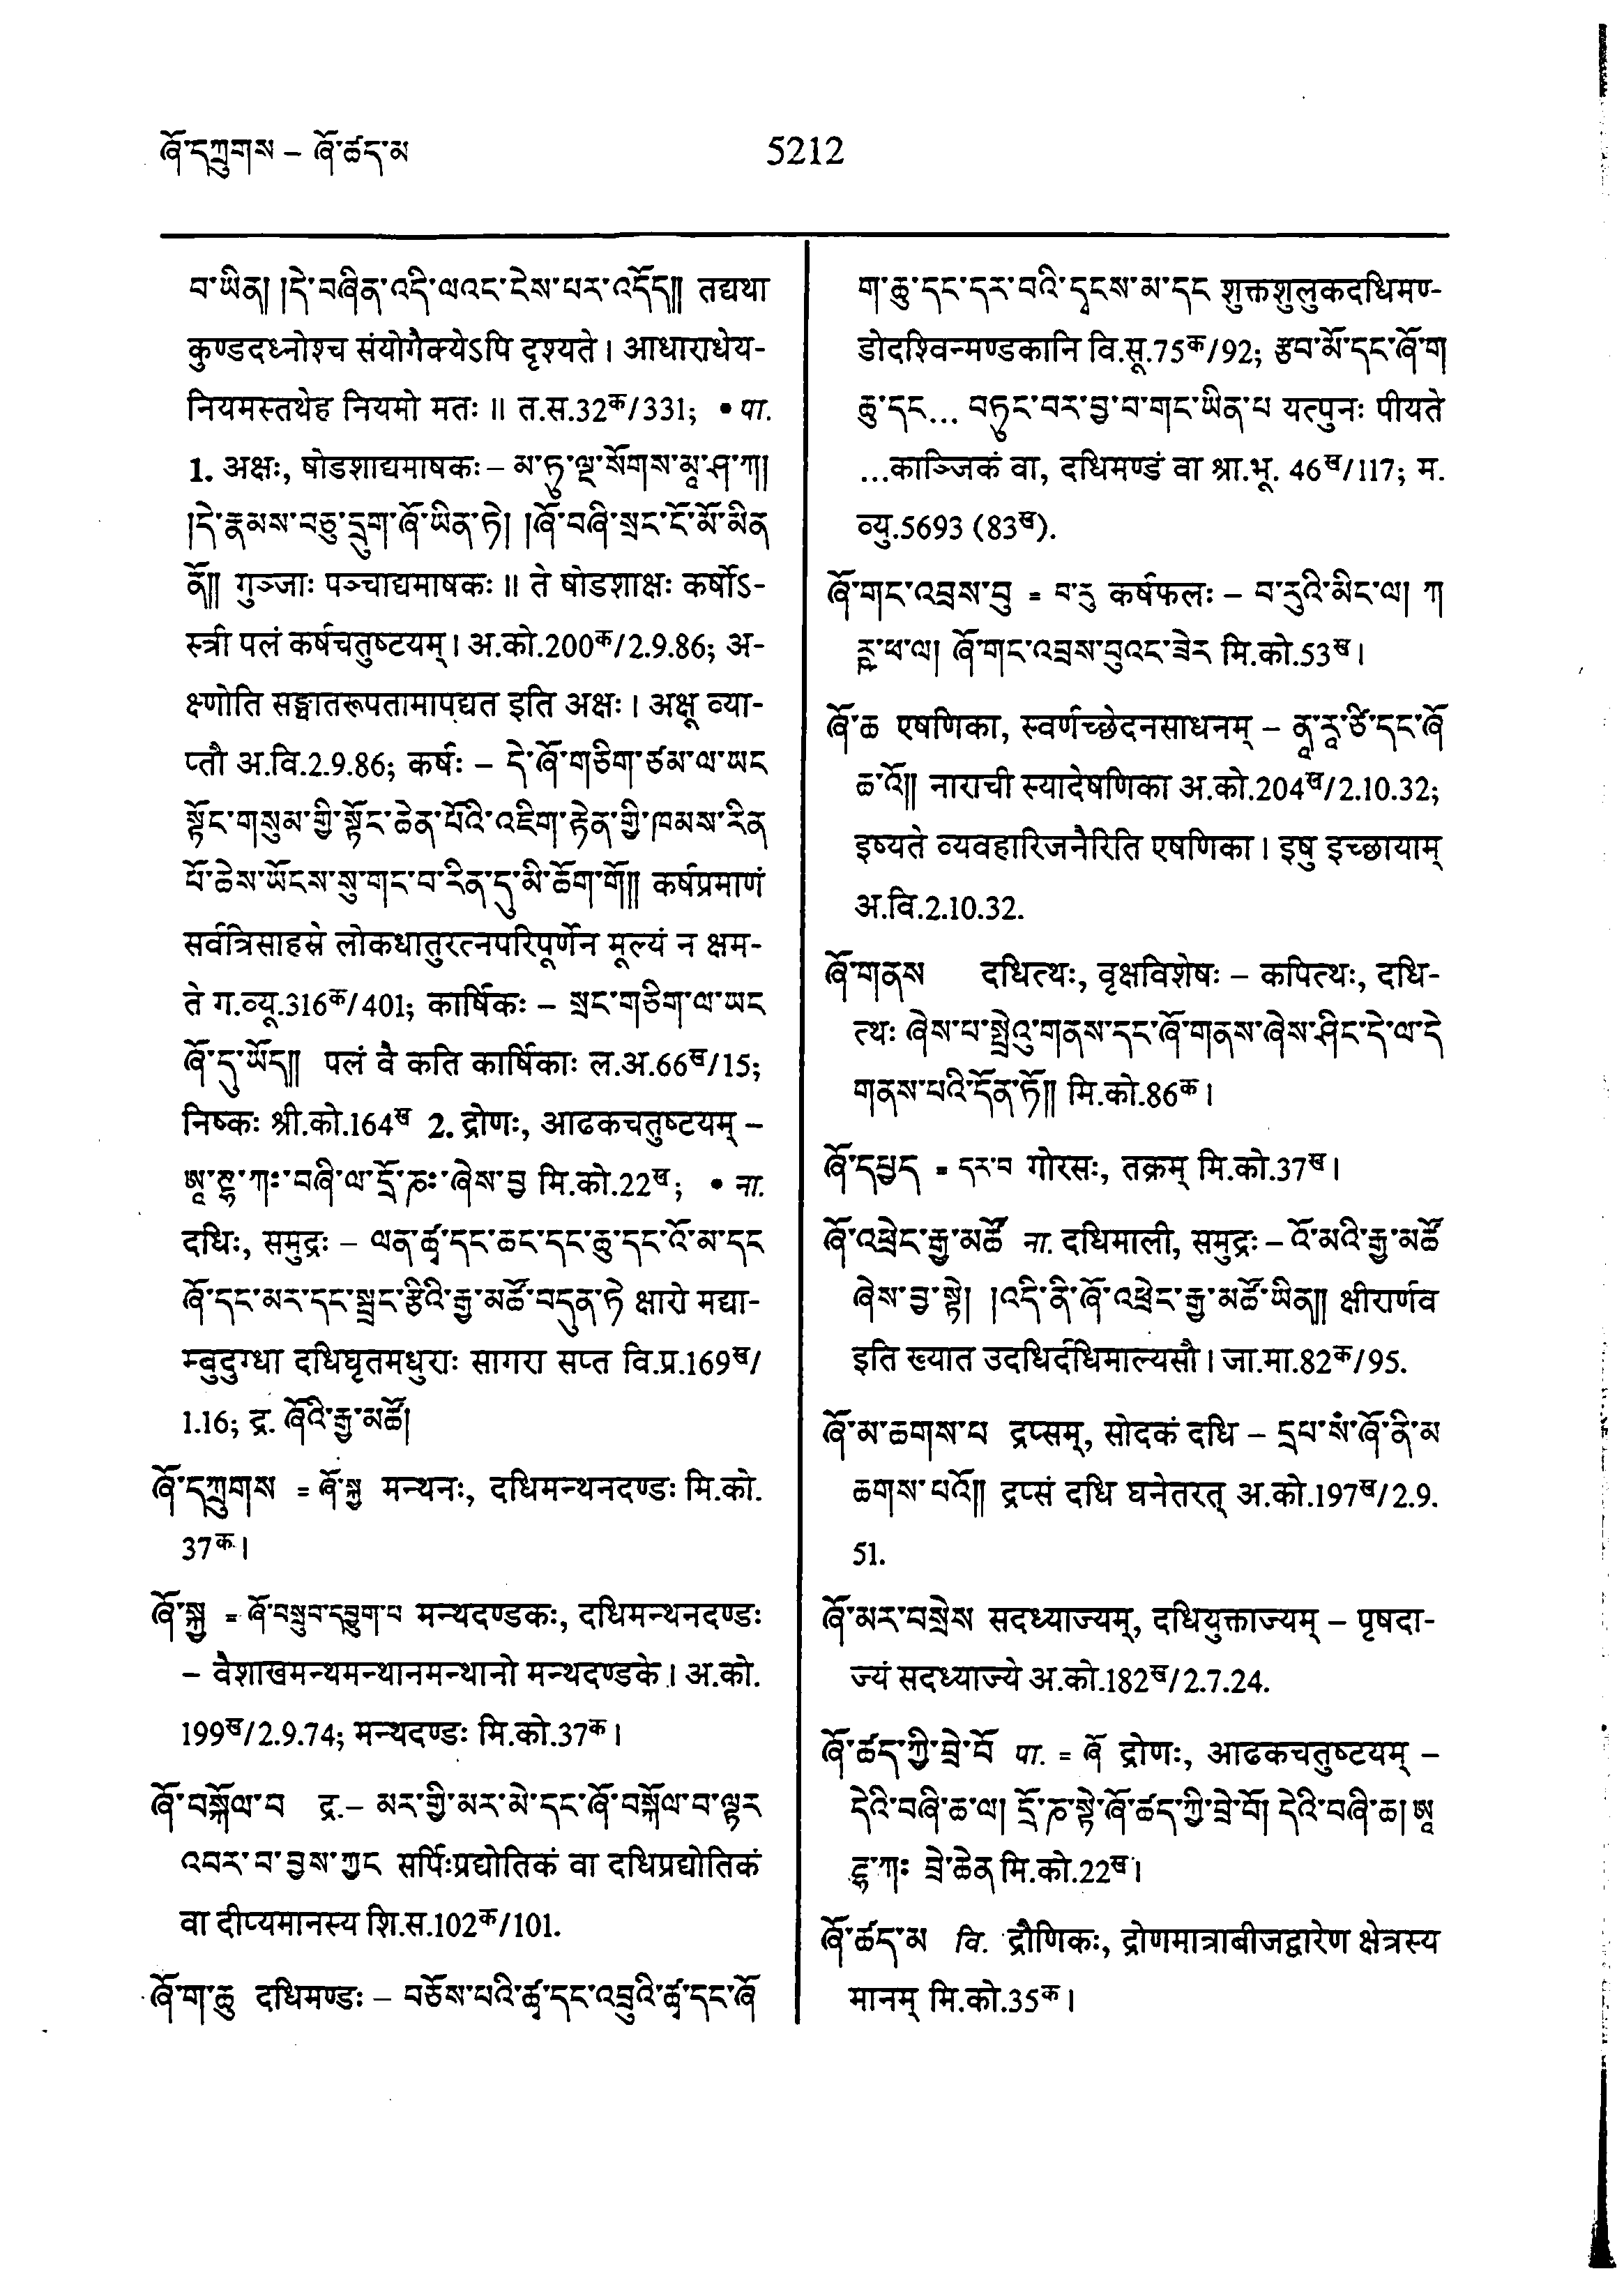 ཞོ་དཀྲུགས – ཞོ་ཚད་མ
5212
བ་ཡིན། །དེ་བཞིན་འདི་ལའང་ངེས་པར་འདོད།། तद्यथा
कुण्डदध्नोश्च संयोगैक्येऽपि दृश्यते। आधाराधेय-
नियमस्तथेह नियमो मतः॥ त.स.32क/331; • पा.
1. अक्षः, षोडशाद्यमाषकः – མ་ཏུ་ལྔ་སོགས་མཱ་ཤ་ཀ།
།དེ་རྣམས་བཅུ་དྲུག་ཞོ་ཡིན་ཏེ། །ཞོ་བཞི་སྲང་ངོ་མོ་མིན
ནོ།། गुञ्जाः पञ्चाद्यमाषकः॥ ते षोडशाक्षः कर्षोऽ-
स्त्री पलं कर्षचतुष्टयम्। अ.को.200क/2.9.86; अ-
क्ष्णोति सङ्घातरूपतामापद्यत इति अक्षः। अक्षू व्या-
प्तौ अ.वि.2.9.86; कर्षः – དེ་ཞོ་གཅིག་ཙམ་ལ་ཡང
སྟོང་གསུམ་གྱི་སྟོང་ཆེན་པོའི་འཇིག་རྟེན་གྱི་ཁམས་རིན
པོ་ཆེས་ཡོངས་སུ་གང་བ་རིན་དུ་མི་ཆོག་གོ།། कर्षप्रमाणं
सर्वत्रिसाहस्रे लोकधातुरत्नपरिपूर्णेन मूल्यं न क्षम-
ते ग.व्यू.316क/401; कार्षिकः – སྲང་གཅིག་ལ་ཡང
ཞོ་དུ་ཡོད།། पलं वै कति कार्षिकाः ल.अ.66ख/15;
निष्कः श्री.को.164ख 2. द्रोणः, आढकचतुष्टयम् –
ཨཱ་ཌྷ་ཀཿ་བཞི་ལ་དྲོ་ཎཿ་ཞེས་བྱ मि.को.22ख; • ना.
दधिः, समुद्रः – ལན་ཚྭ་དང་ཆང་དང་ཆུ་དང་འོ་མ་དང
ཞོ་དང་མར་དང་སྦྲང་རྩིའི་རྒྱ་མཚོ་བདུན་ཏེ क्षारो मद्या-
म्बुदुग्धा दधिघृतमधुराः सागरा सप्त वि.प्र.169ख/
1.16; द्र. ཞོའི་རྒྱ་མཚོ།
ཞོ་དཀྲུགས = ཞོ་སྐྱ मन्थनः, दधिमन्थनदण्डः मि.को.
37क।
ཞོ་སྐྱ = ཞོ་བསྲུབ་དབྱུག་པ मन्थदण्डकः, दधिमन्थनदण्डः
– वैशाखमन्थमन्थानमन्थानो मन्थदण्डके। अ.को.
199ख/2.9.74; मन्थदण्डः मि.को.37क।
ཞོ་བསྐོལ་བ द्र.– མར་གྱི་མར་མེ་དང་ཞོ་བསྐོལ་བ་ལྟར
འབར་བ་བྱས་ཀྱང सर्पिःप्रद्योतिकं वा दधिप्रद्योतिकं
वा दीप्यमानस्य शि.स.102क/101.
ཞོ་ག་ཆུ दधिमण्डः – བཅོས་པའི་ཚྭ་དང་འབྲུའི་ཚྭ་དང་ཞོ
ག་ཆུ་དང་དར་བའི་དྭངས་མ་དང शुक्तशुलुकदधिमण्-
डोदश्विन्मण्डकानि वि.सू.75क/92; རྩབ་མོ་དང་ཞོ་ག
ཆུ་དང... བཏུང་བར་བྱ་བ་གང་ཡིན་པ यत्पुनः पीयते
...काञ्जिकं वा, दधिमण्डं वा श्रा.भू. 46ख/117; म.
व्यु.5693 (83ख).
ཞོ་གང་འབྲས་བུ = བ་རུ कर्षफलः – བ་རུའི་མིང་ལ། ཀ
རྵ་ཕ་ལ། ཞོ་གང་འབྲས་བུའང་ཟེར मि.को.53ख।
ཞོ་ཆ एषणिका, स्वर्णच्छेदनसाधनम् – ནཱ་རཱ་ཙི་དང་ཞོ
ཆ་འོ།། नाराची स्यादेषणिका अ.को.204ख/2.10.32;
इष्यते व्यवहारिजनैरिति एषणिका। इषु इच्छायाम्
अ.वि.2.10.32.
ཞོ་གནས दधित्थः, वृक्षविशेषः – कपित्थः, दधि-
त्थः ཞེས་པ་སྤྲེའུ་གནས་དང་ཞོ་གནས་ཞེས་ཤིང་དེ་ལ་དེ
གནས་པའི་དོན་ཏོ།། मि.को.86क।
ཞོ་དཔྱད = དར་བ गोरसः, तक्रम् मि.को.37ख।
ཞོ་འཕྲེང་རྒྱ་མཚོ ना. दधिमाली, समुद्रः – འོ་མའི་རྒྱ་མཚོ
ཞེས་བྱ་སྟེ། །འདི་ནི་ཞོ་འཕྲེང་རྒྱ་མཚོ་ཡིན།། क्षीरार्णव
इति ख्यात उदधिर्दधिमाल्यसौ। जा.मा.82क/95.
ཞོ་མ་ཆགས་པ द्रप्सम्, सोदकं दधि – དྲཔ་སཾ་ཞོ་ནི་མ
ཆགས་པའོ།། द्रप्सं दधि घनेतरत् अ.को.197ख/2.9.
51.
ཞོ་མར་བསྲེས सदध्याज्यम्, दधियुक्ताज्यम् – पृषदा-
ज्यं सदध्याज्ये अ.को.182ख/2.7.24.
ཞོ་ཚད་ཀྱི་བྲེ་བོ पा. = ཞོ द्रोणः, आढकचतुष्टयम् –
དེའི་བཞི་ཆ་ལ། དྲོ་ཎ་སྟེ་ཞོ་ཚད་ཀྱི་བྲེ་བོ། དེའི་བཞི་ཆ། ཨཱ
ཌྷ་ཀཿ བྲེ་ཆེན मि.को.22ख।
ཞོ་ཚད་མ वि. द्रौणिकः, द्रोणमात्राबीजद्वारेण क्षेत्रस्य
मानम् मि.को.35क।